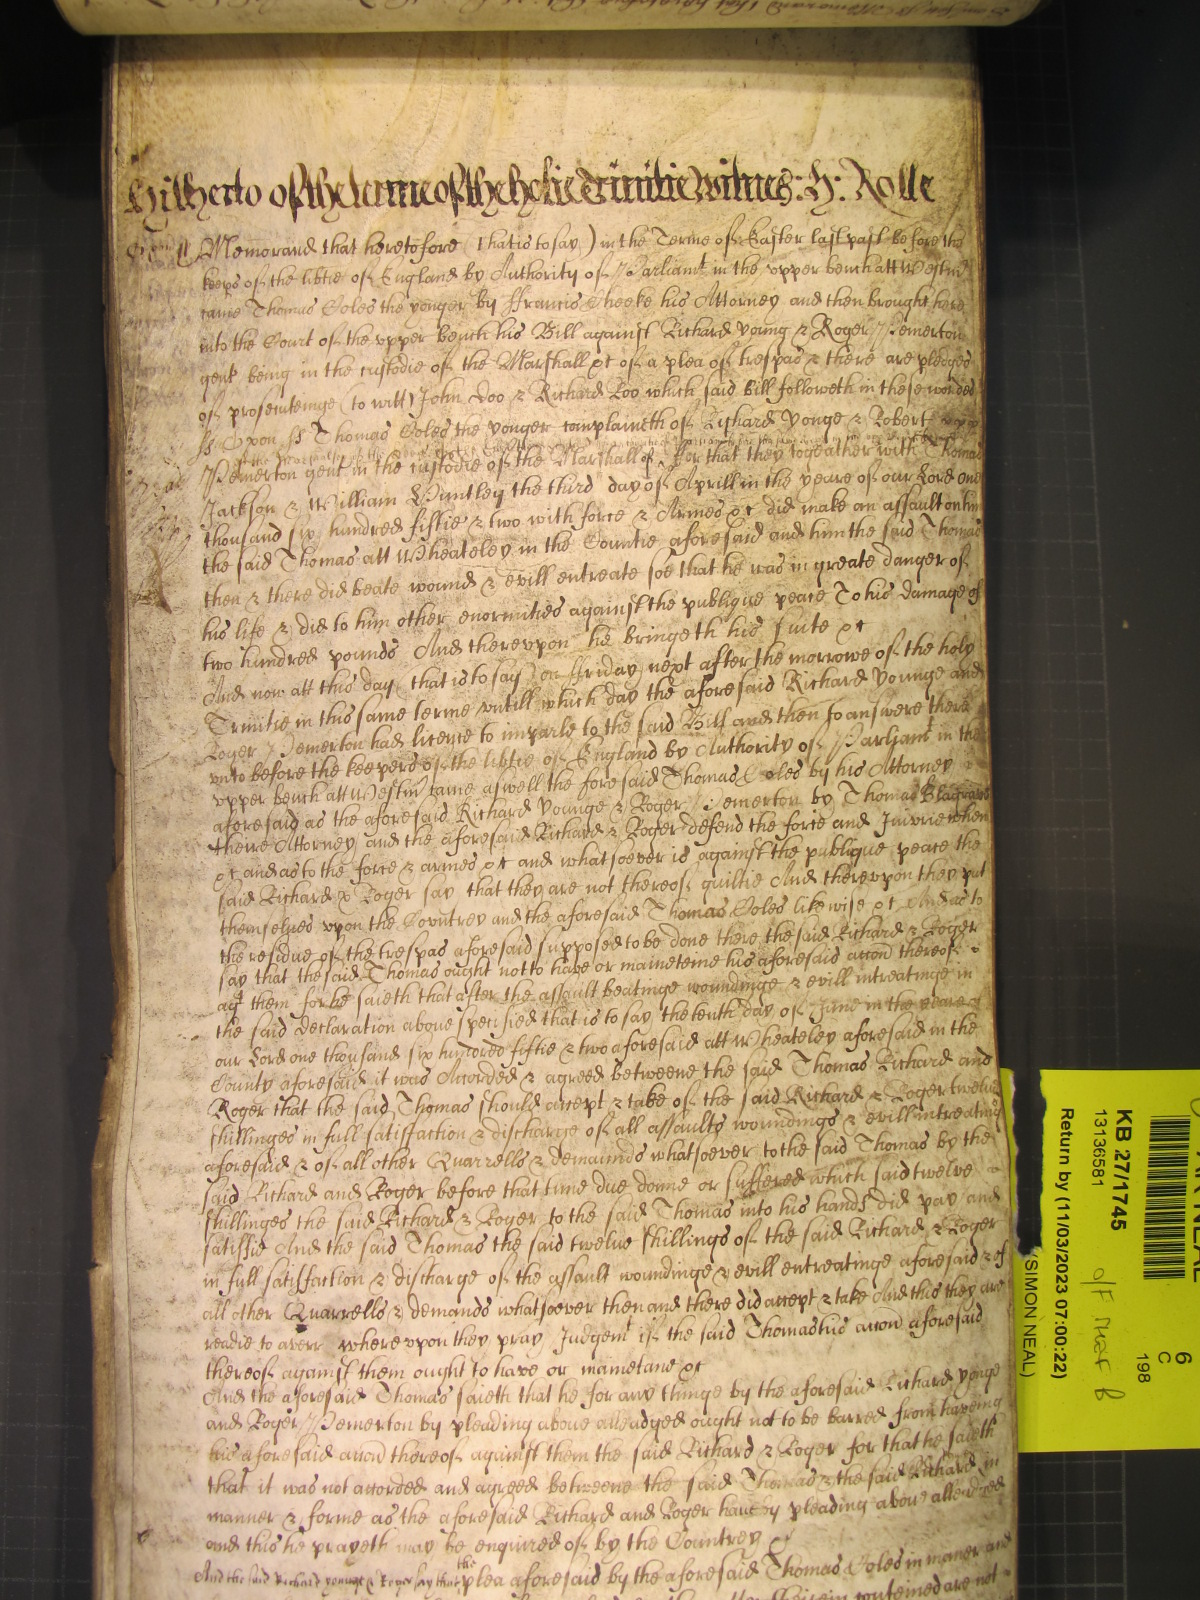 Hitherto of the terme of the holie Trinitie Witnes: H: Rolle
Memorand that heretofore (that is to say) in the Terme of Easter last past before the
keeps of the libtie of England by Authority of Parliamt in the upper bench att Westmr
came Thomas Coles the yonger by Francis Cheeke his Attorney and then brought here
into the Court of the upper bench his Bill against Richard Young & Roger Pemerton
gent being in the custodie of the Marshall &c of a plea of trespas & there are pledges
of prosecuteinge (to witt) John Doo & Richard Roo which said Bill followeth in these wordes
ss Thomas Coles the yonger complaineth of Richard Yonge & Robert
Pemerton gent in the custodie of the Marshall &c For that they togeather with Thomas
Jackson & William Huntley the third day of Aprill in the yeare of our Lord one
thousand six hundred fiftie & two with force & Armes &c did make an assault on him
the said Thomas att Wheateley in the Countie aforesaid and him the said Thomas
then & there did beate wound & evill entreate soe that he was in greate danger of
his life & did to him other enormities against the publique peace To his damage of
two hundred pounds And thereupon he bringeth his suite &c
And now att this day (that is to say) on Friday next after the morrowe of the holy
Trinitie in this same terme untill which day the aforesaid Richard Younge and
Roger Pemerton had licence to imparle to the said Bill and then to answere there
unto before the keepers of the libtie of England by Authority of Parliamt in the
upper bench att Westmr came aswell the foresaid Thomas Coles by his Attorney
aforesaid as the aforesaid Richard Younge & Roger Pemerton by Thomas Blagrave
theire Attorney and the aforesaid Richard & Roger defend the force and Iniurie when
&c and as to the force & armes &c and whatsoever is against the publique peace the
said Richard & Roger say that they are not thereof guiltie And thereupon they put
themselves upon the Countrey and the aforesaid Thomas Coles likewise &c And as to
the residue of the trespas aforesaid supposed to be done there the said Richard & Roger
say that the said Thomas ought not to have or mainteine his aforesaid accon thereof
agt them for he saieth that after the assault beatinge woundinge & evill intreatinge in
the said declaration above specified that is to say the tenth day of June in the yeare of
our Lord one thousand six hundred fiftie & two aforesaid att Wheateley aforesaid in the
County aforesaid it was Accorded & agreed betweene the said Thomas Richard and
Roger that the said Thomas should accept & take of the said Richard & Roger twelve
shillinges in full satisfaction & discharge of all assaults woundings & evill intreating
aforesaid & of all other Quarrells & demaunds whatsoever to the said Thomas by the
said Richard and Roger before that time due donne or suffered which said twelve
shillinges the said Richard & Roger to the said Thomas into his hands did pay and
satisfie And the said Thomas the said twelve shillings of the said Richard & Roger
in full satisfaction & discharge of the assault woundinge & evill entreatinge aforesaid & of
all other Quarrells & demands whatsoever then and there did accept & take And this they are
readie to averr whereupon they pray Judgemt if the said Thomas his accon aforesaid
thereof against them ought to have or mainetane &c
And the aforesaid Thomas saieth that he for any thinge by the aforesaid Richard yonge
and Roger Pemerton by pleading above alleadged ought not to be barred from haveing
his aforesaid accon thereof against them the said Richard & Roger for that he saieth
that it was not accorded and agreed betweene the said Thomas & the said Richard in
manner & forme as the aforesaid Richard and Roger have by pleading above alleadged
and this he prayeth may be enquired of by the Countrey
And the said Richard younge & Roger say that the plea aforesaid by the aforesaid Thomas Coles in maner and
therein conteined are not
KB 27/1745
13136581
Return by (11/03/2023 07:00:22)
(SIMON NEAL)
6
C
198